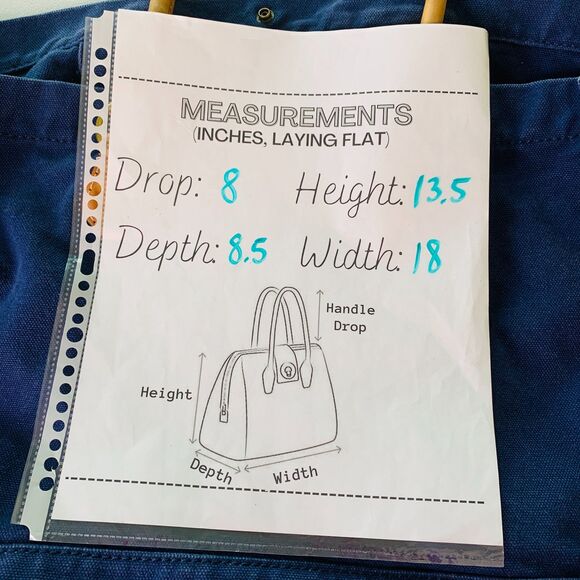 MEASUREMENTS
(INCHES, LAYING FLAT)
Drop: 8 Height: 13.5
Depth: 8.5 Width: 18
Handle
Drop
Height
Depth Width